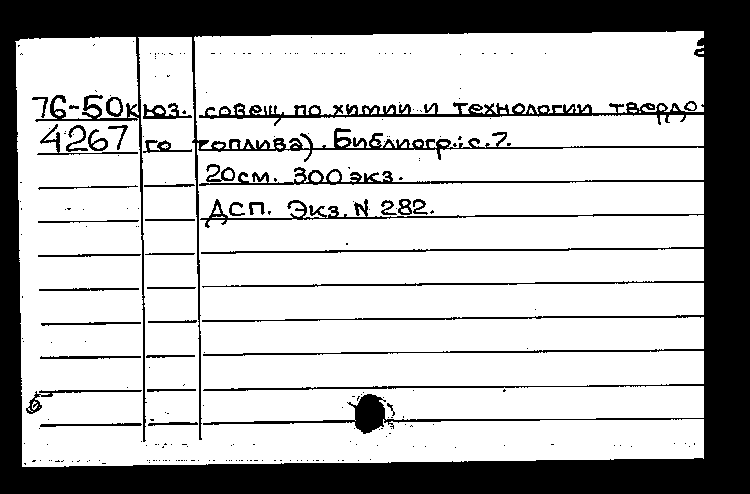 76-50к юз. совещ, по химии и технологии твердо-
4267 го топлива). Библиогр.: с.7.
20см. 300 экз.
ДСП. Экз. N 282.
б